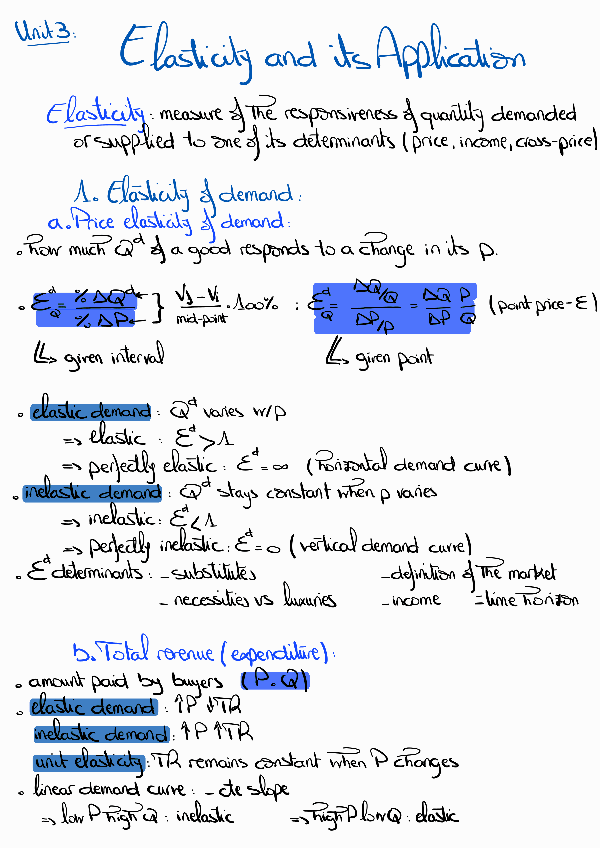 Unit 3:
Elasticity and its Application
Elasticity: measure of the responsiveness of quantity demanded
or supplied to one of its determinants (price, income, cross-price)
1. Elasticity of demand:
a. Price elasticity of demand:
• how much Qᵈ of a good responds to a change in its p.
• Ɛᵈ_Q = %ΔQᵈ / %ΔP } (Vf - Vi) / mid-point · 100% : Ɛᵈ_Q = (ΔQ/Q) / (ΔP/P) = ΔQ/ΔP · P/Q (point price-Ɛ)
↳ given interval ↳ given point
• elastic demand: Qᵈ varies w/p
⇒ elastic: Ɛᵈ > 1
⇒ perfectly elastic: Ɛᵈ = ∞ (horizontal demand curve)
• inelastic demand: Qᵈ stays constant when p varies
⇒ inelastic: Ɛᵈ < 1
⇒ perfectly inelastic: Ɛᵈ = 0 (vertical demand curve)
• Ɛᵈ determinants: - substitutes - definition of the market
- necessities vs luxuries - income - time horizon
b. Total revenue (expenditure):
• amount paid by buyers (P.Q)
• elastic demand: ↑P ↓TR
inelastic demand: ↑P ↑TR
unit elasticity: TR remains constant when P changes
• linear demand curve: - cte slope
⇒ low P high Q: inelastic ⇒ high P low Q: elastic